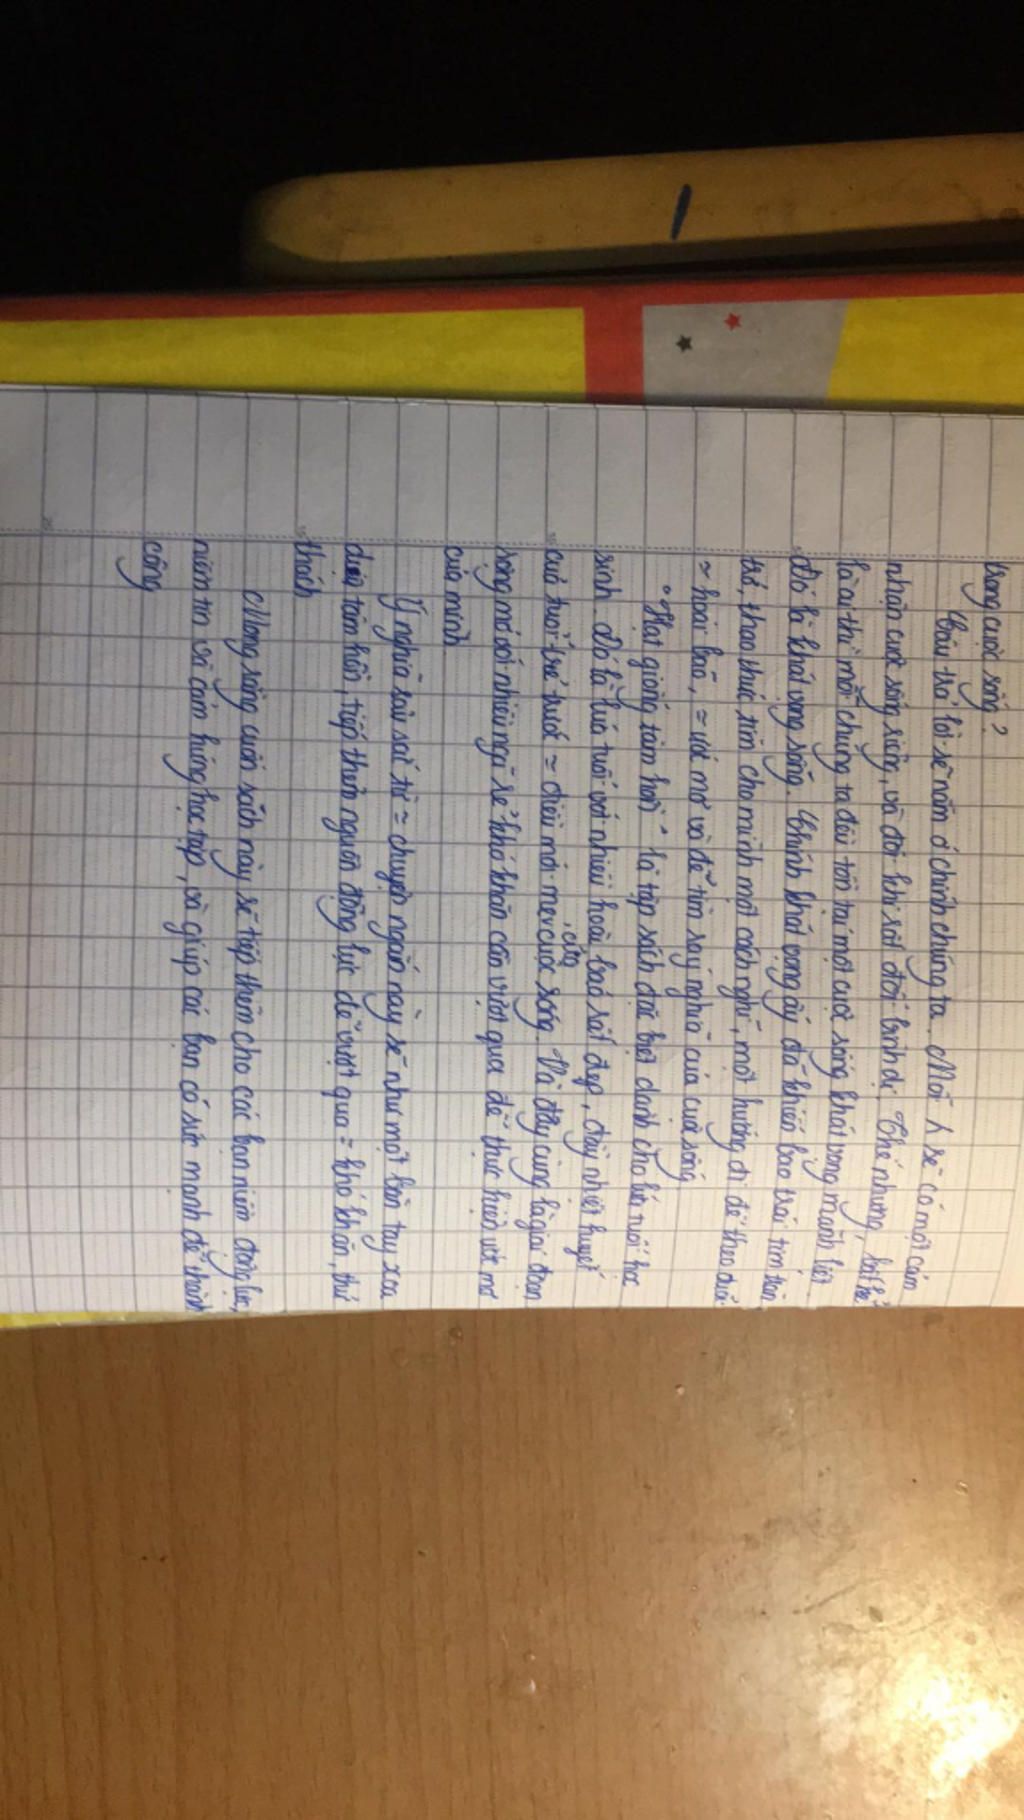 trong cuộc sống?
Câu trả lời sẽ nằm ở chính chúng ta. Mỗi sẽ có một cảm
nhận cuộc sống riêng, và đôi khi rất đỗi bình dị. Thế nhưng, bất kể
là ai thì mỗi chúng ta đều tồn tại một cuộc sống khát vọng mãnh liệt.
Đó là khát vọng sống. Chính khát vọng ấy đã khiến bao trái tim trăn
trở, thao thức tìm cho mình một cách nghĩ, một hướng đi để theo đuổi
≈ hoài bão, ≈ ước mơ và để tìm ra ý nghĩa của cuộc sống
"Hạt giống tâm hồn" là tập sách đặc biệt dành cho lứa tuổi học
sinh. Đó là lứa tuổi với nhiều hoài bão rất đẹp, đầy nhiệt huyết
của tuổi trẻ trước ≈ điều mới mẻ của cuộc sống. Và đây cũng là giai đoạn
sóng mở với nhiều ngã rẽ khó khăn cần vượt qua để thực hiện ước mơ
của mình
Ý nghĩa sâu sắc từ ≈ chuyện ngắn này sẽ như một bàn tay xoa
dịu tâm hồn, tiếp thêm nguồn động lực để vượt qua ≈ khó khăn, thử
thách
Mong rằng cuốn sách này sẽ tiếp thêm cho các bạn niềm động lực,
niềm tin và cảm hứng học tập, và giúp các bạn có sức mạnh để thành
công